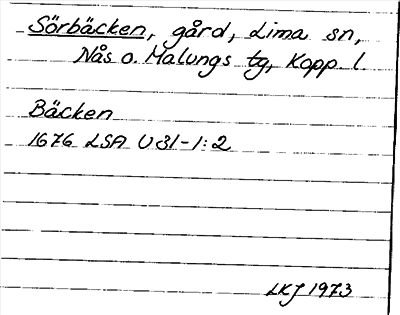 Sörbäcken, gård, Lima sn,
Nås o. Malungs tg, Kopp. l.
Bäcken
1676 LSA U31-1:2
LKJ 1973